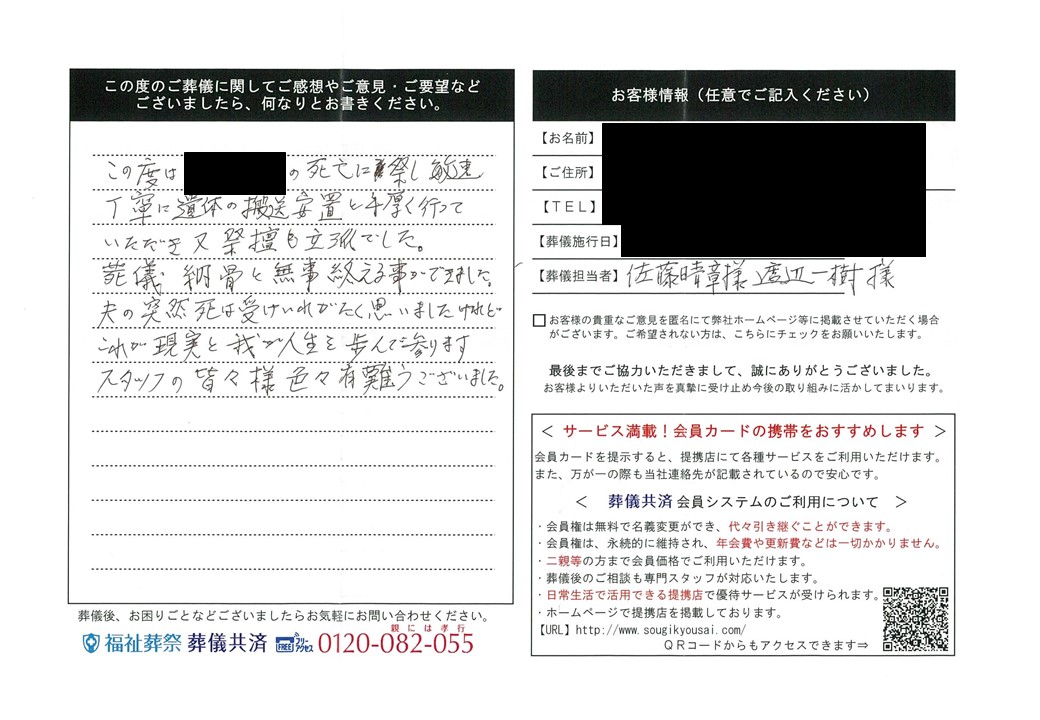 この度のご葬儀に関してご感想やご意見・ご要望など
ございましたら、何なりとお書きください。
この度は
の死亡に際し敏速
丁寧に遺体の搬送安置と手厚く行って
いただき又祭壇も立派でした。
葬儀 納骨と無事終える事ができました。
夫の突然死は受けいれがたく思いましたけれど
これが現実と我が人生を歩んで参ります
スタッフの皆々様色々有難うございました。
葬儀後、お困りごとなどございましたらお気軽にお問い合わせください。
親には孝行
福祉葬祭 葬儀共済 FREE フリーアクセス 0120-082-055
お客様情報（任意でご記入ください）
【お名前】
【ご住所】
【TEL】
【葬儀施行日】
【葬儀担当者】佐藤晴章様 渡辺一樹様
□お客様の貴重なご意見を匿名にて弊社ホームページ等に掲載させていただく場合
がございます。ご希望されない方は、こちらにチェックをお願いいたします。
最後までご協力いただきまして、誠にありがとうございました。
お客様よりいただいた声を真摯に受け止め今後の取り組みに活かしてまいります。
＜ サービス満載！会員カードの携帯をおすすめします ＞
会員カードを提示すると、提携店にて各種サービスをご利用いただけます。
また、万が一の際も当社連絡先が記載されているので安心です。
＜ 葬儀共済会員システムのご利用について ＞
・会員権は無料で名義変更ができ、代々引き継ぐことができます。
・会員権は、永続的に維持され、年会費や更新費などは一切かかりません。
・二親等の方まで会員価格でご利用いただけます。
・葬儀後のご相談も専門スタッフが対応いたします。
・日常生活で活用できる提携店で優待サービスが受けられます。
・ホームページで提携店を掲載しております。
【URL】http://www.sougikyousai.com/
QRコードからもアクセスできます⇒